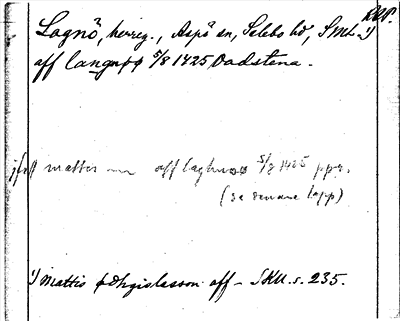 Lagnö, herrg., Aspö sn, Selebo hd, Sml. 1)
aff langnøø 5/8 1425 Vadstena.
mattis aff laghnøø 5/8 1425 ppr.
(se senare lapp)
1) Mattis Ødhgislasson aff – SRU. s. 235.